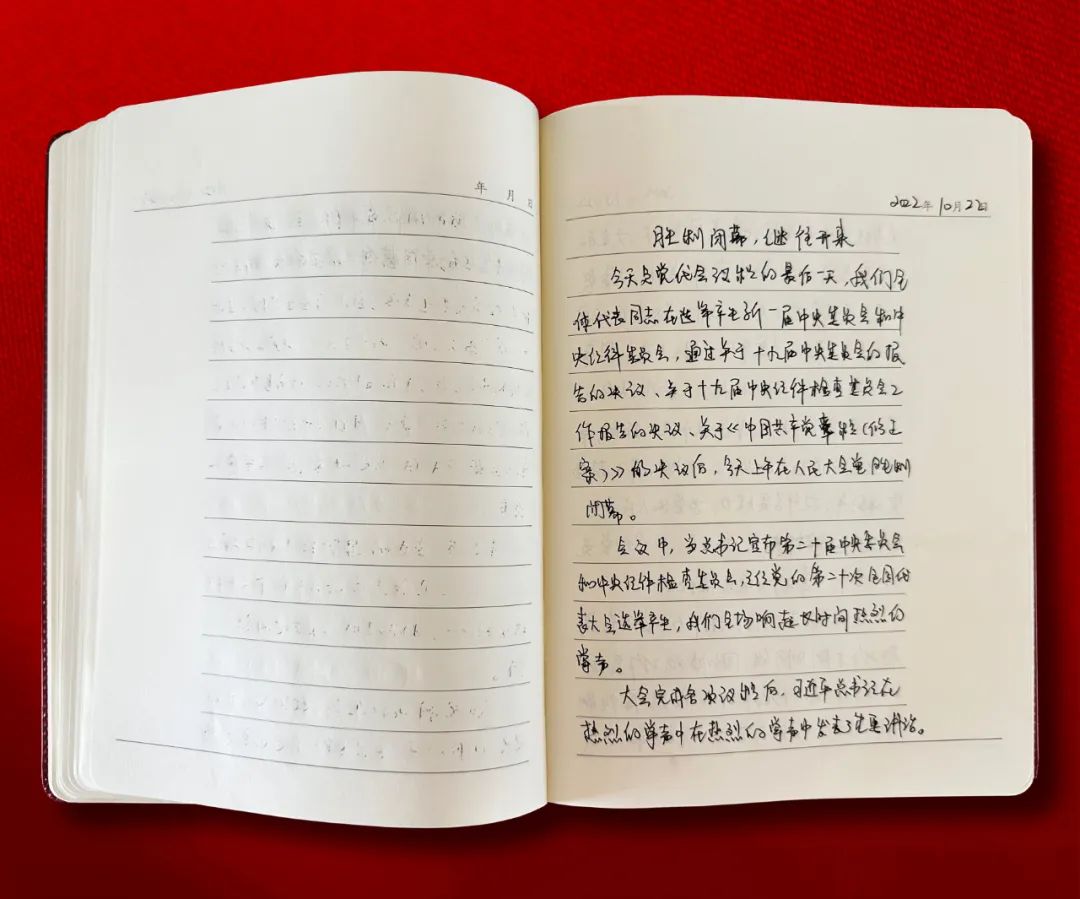 年 月 日
2022年10月22日
胜利闭幕，继往开来
今天是党代会议程的最后一天，我们全
体代表同志在选举产生新一届中央委员会和中
央纪委员会，通过关于十九届中央委员会的报
告的决议、关于十九届中央纪律检查委员会工
作报告的决议、关于《中国共产党章程（修正
案）》的决议后，今天上午在人民大会堂胜利
闭幕。
会议中，当总书记宣布第二十届中央委员会
和中央纪律检查委员会，已经党的第二十次全国代
表大会选举产生，我们全场响起长时间热烈的
掌声。
大会完成各项议程后，习近平总书记在
热烈的掌声中在热烈的掌声中发表了重要讲话。